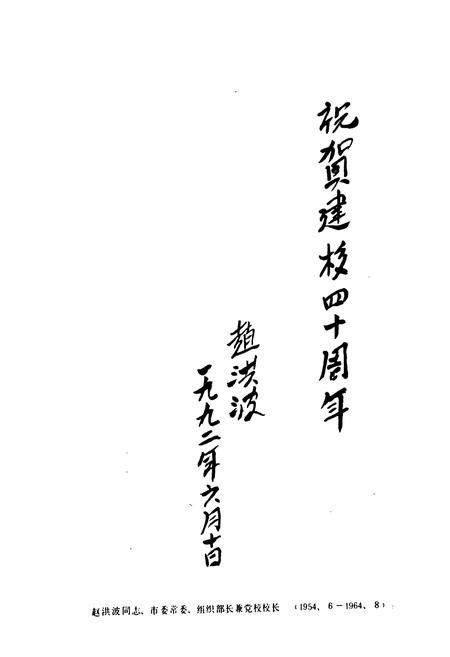 祝贺建校四十周年
趙洪波
一九九二年六月十日
赵洪波同志、市委常委、组织部长兼党校校长 (1954、6－1964、8)